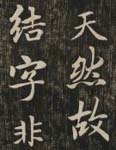 天然故
結字非